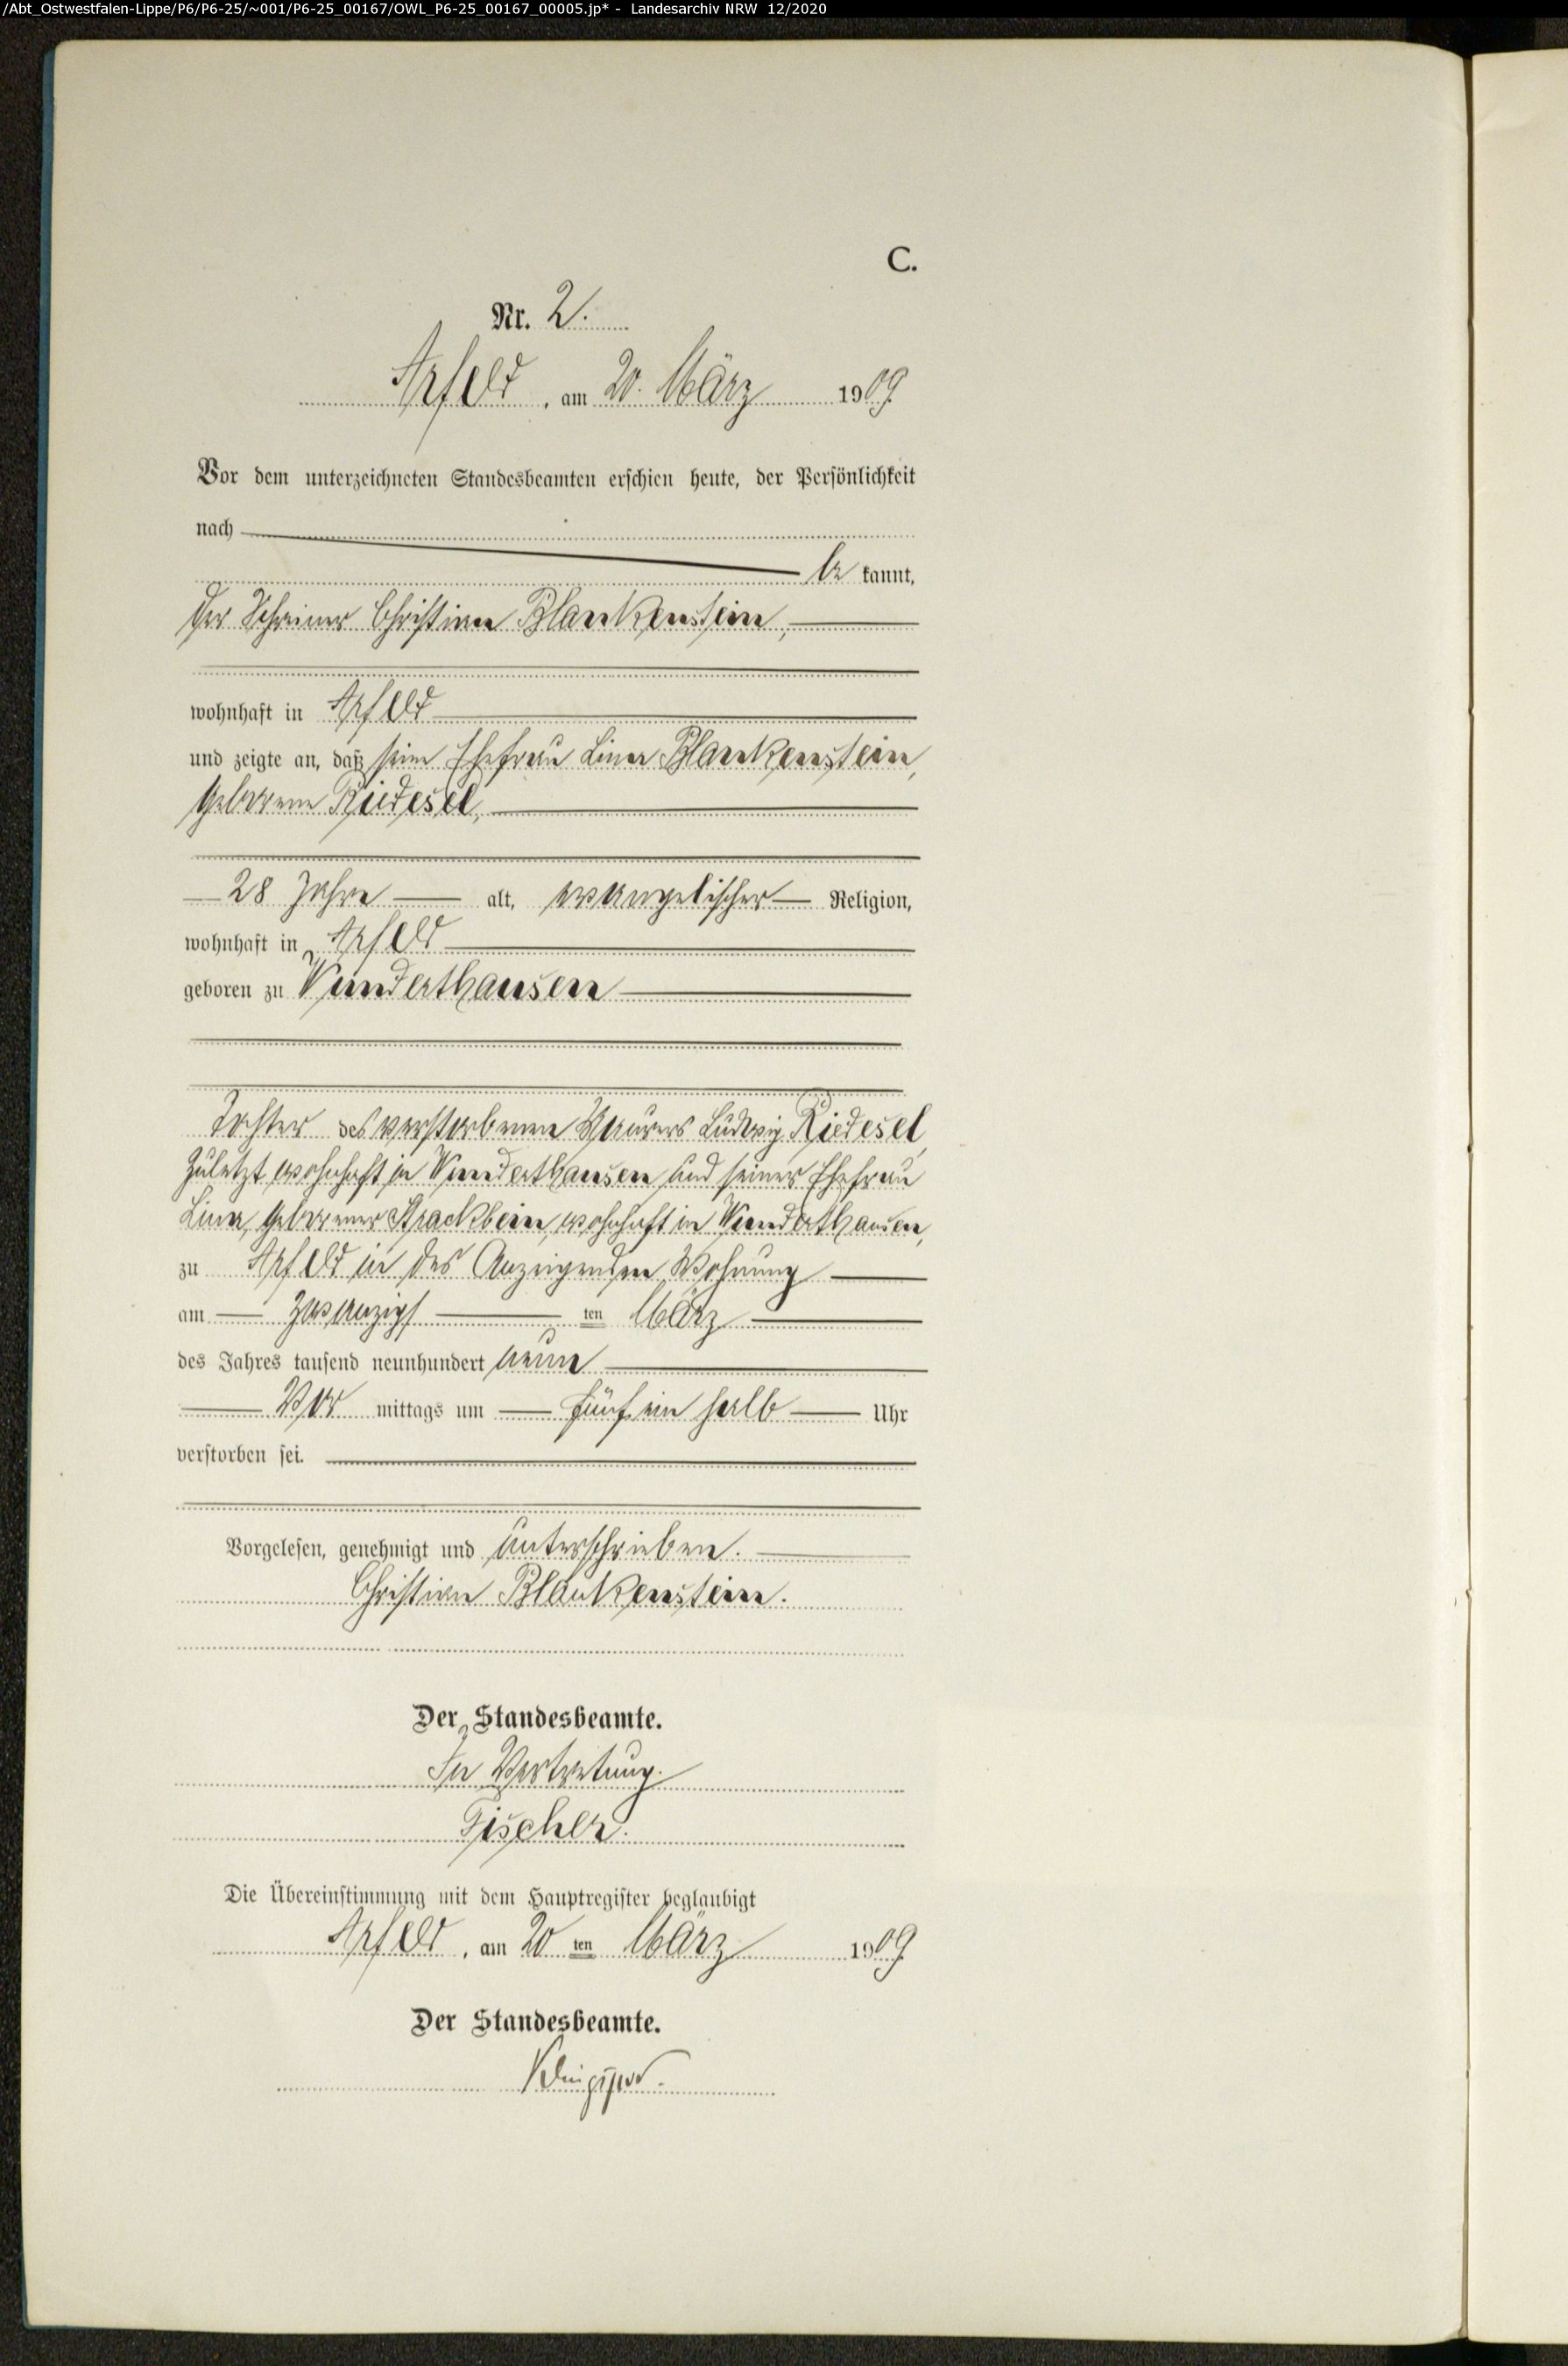 /Abt_Ostwestfalen-Lippe/P6/P6-25/~001/P6-25_00167/OWL_P6-25_00167_00005.jp* - Landesarchiv NRW 12/2020
C.
Nr. 2.
Arfeld, am 20. März 1909
Vor dem unterzeichneten Standesbeamten erschien heute, der Persönlichkeit
nach
be kannt,
der Schreiner Christian Blankenstein,
wohnhaft in Arfeld
und zeigte an, daß seine Ehefrau Lina Blankenstein,
geborene Riedesel,
28 Jahre alt, evangelischer Religion,
wohnhaft in Arfeld
geboren zu Wunderthausen
Tochter des verstorbenen Maurers Ludwig Riedesel,
zuletzt wohnhaft in Wunderthausen und seiner Ehefrau
Lina, geborener Strackbein, wohnhaft in Wunderthausen,
zu Arfeld in des Anzeigenden Wohnung
am zwanzigs ten März
des Jahres tausend neunhundert neun
Vor mittags um fünf ein halb Uhr
verstorben sei.
Vorgelesen, genehmigt und unterschrieben.
Christian Blankenstein.
Der Standesbeamte.
In Vertretung.
Fischer.
Die Übereinstimmung mit dem Hauptregister beglaubigt
Arfeld, am 20 ten März 1909
Der Standesbeamte.